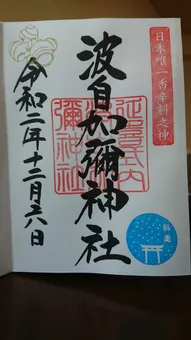 日本唯一香辛料之神
波自加彌神社
延喜式内
波自加
彌神社
令和二年十二月六日